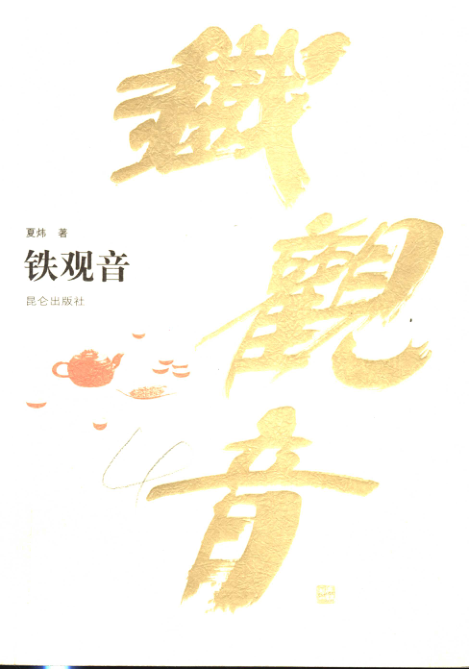 鐵
觀
音
夏炜 著
铁观音
昆仑出版社